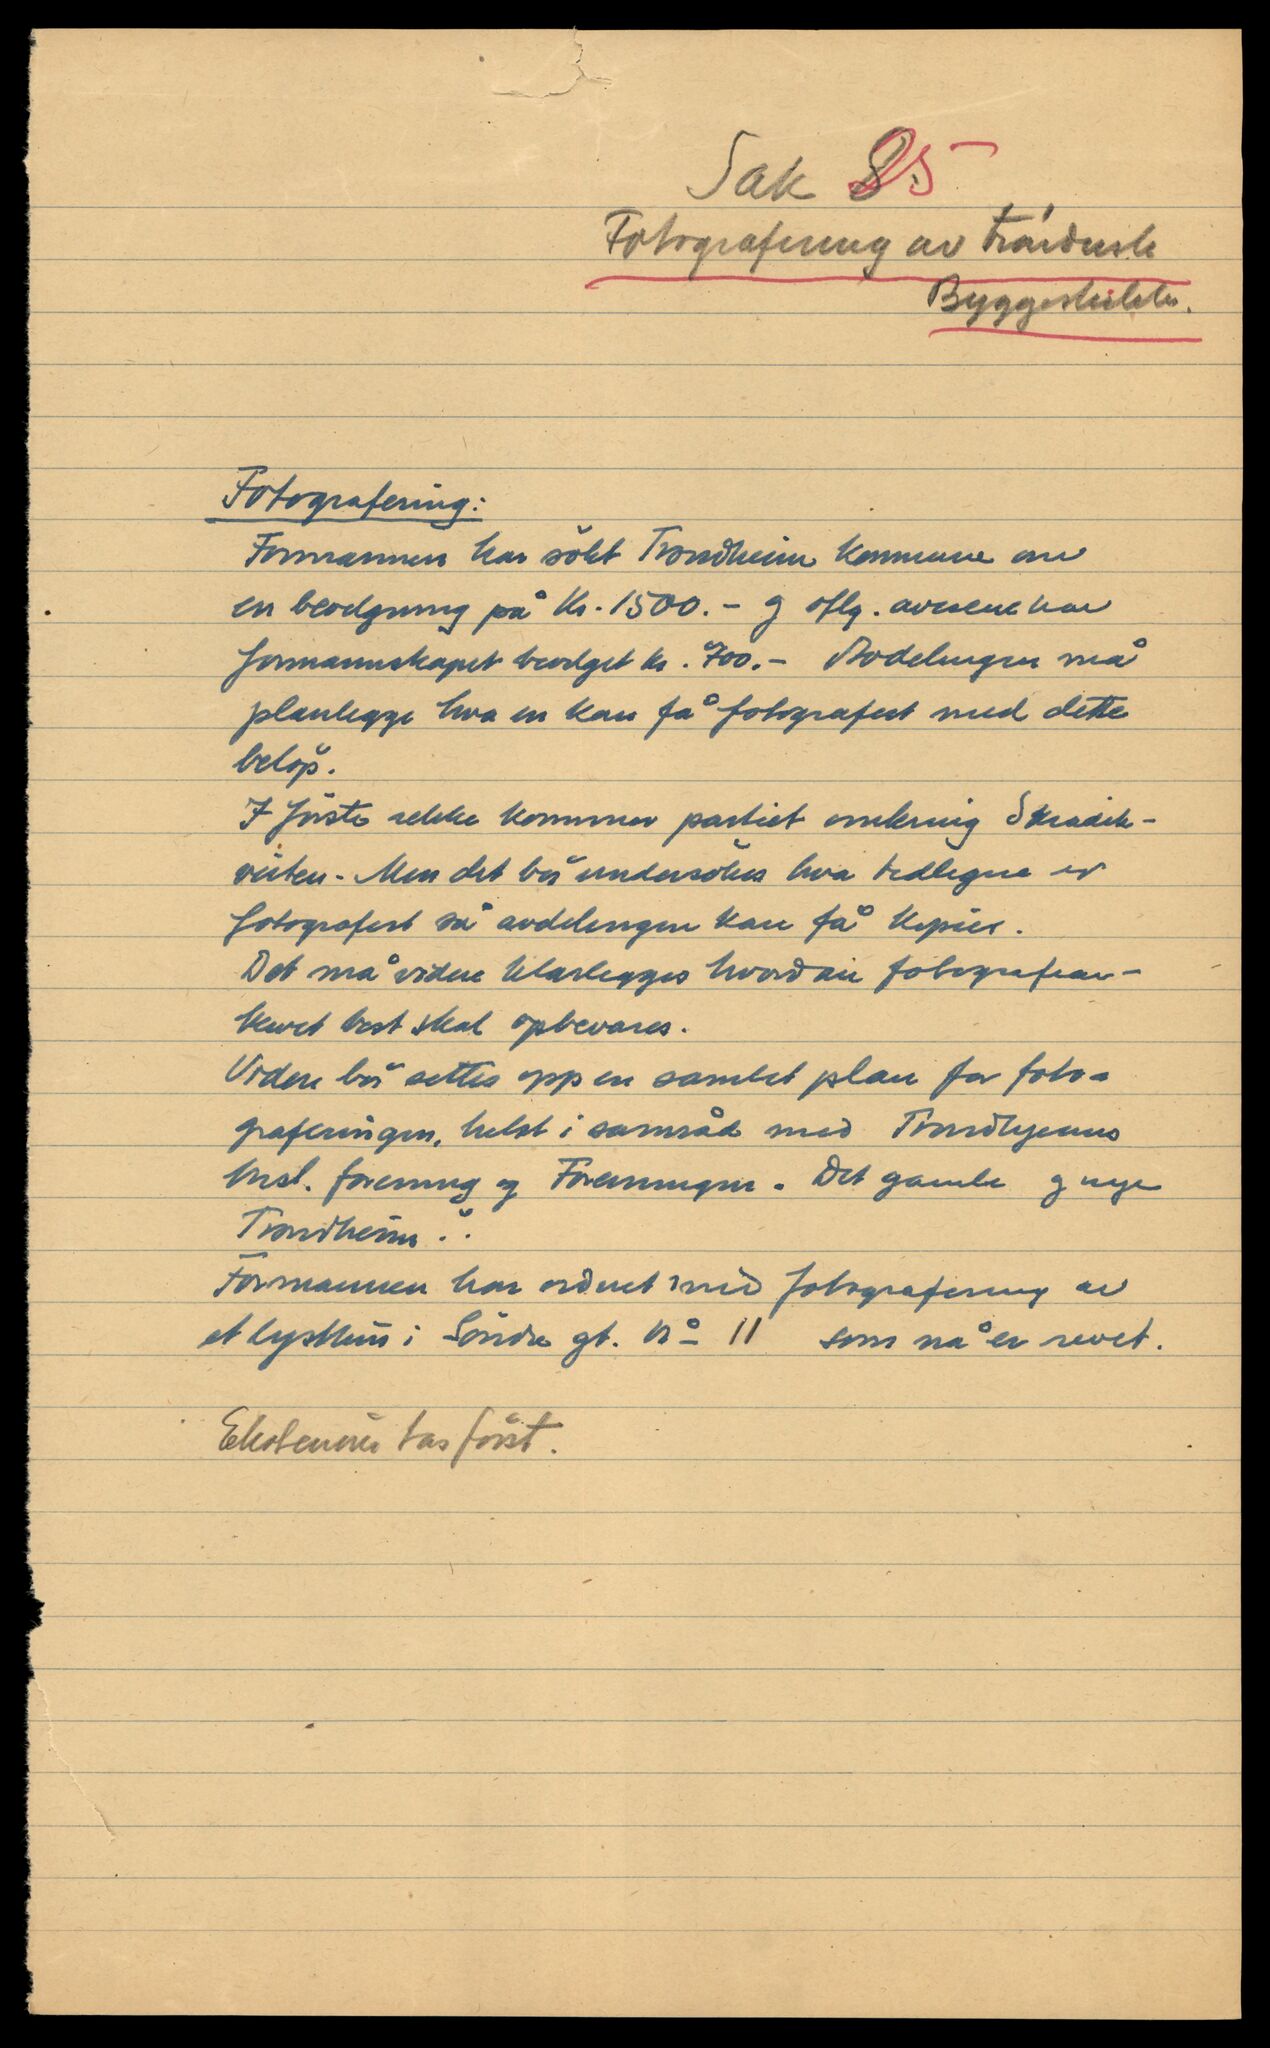 Sak 85
Fotografering av trøndersk
Byggeskikk.
Fotografering:
Formannen har søkt Trondheim kommune om
en bevilgning på kr. 1500.- og iflg. avisene har
formannskapet bevilget kr. 700.- Avdelingen må
planlegge hva en kan få fotografert med dette
beløp.
I første rekke kommer partiet omkring
veiten. Men det bør undersøkes hva tidligere er
fotografert så avdelingen kan få kopier.
Det må videre klarlegges hvordan fotografiar-
kivet best skal opbevares.
Videre bør settes opp en samlet plan for foto-
graferingen, helst i samråd med Trondhjems
hist. forening og Foreningen "Det gamle og nye
Trondheim".
Formannen har ordnet med fotografering av
et lysthus i Søndre gt. Nº 11 som nå er revet.
tas først.